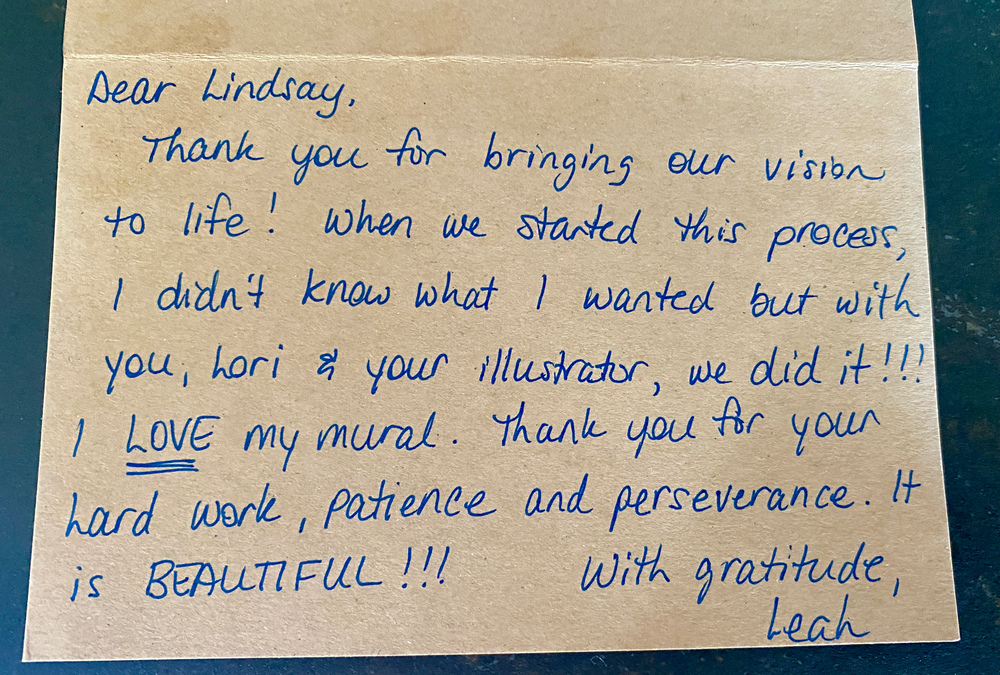 Dear Lindsay,
Thank you for bringing our vision
to life! When we started this process,
I didn't know what I wanted but with
you, Lori & your illustrator, we did it!!!
I LOVE my mural. Thank you for your
hard work, patience and perseverance. It
is BEAUTIFUL!!! With gratitude,
Leah